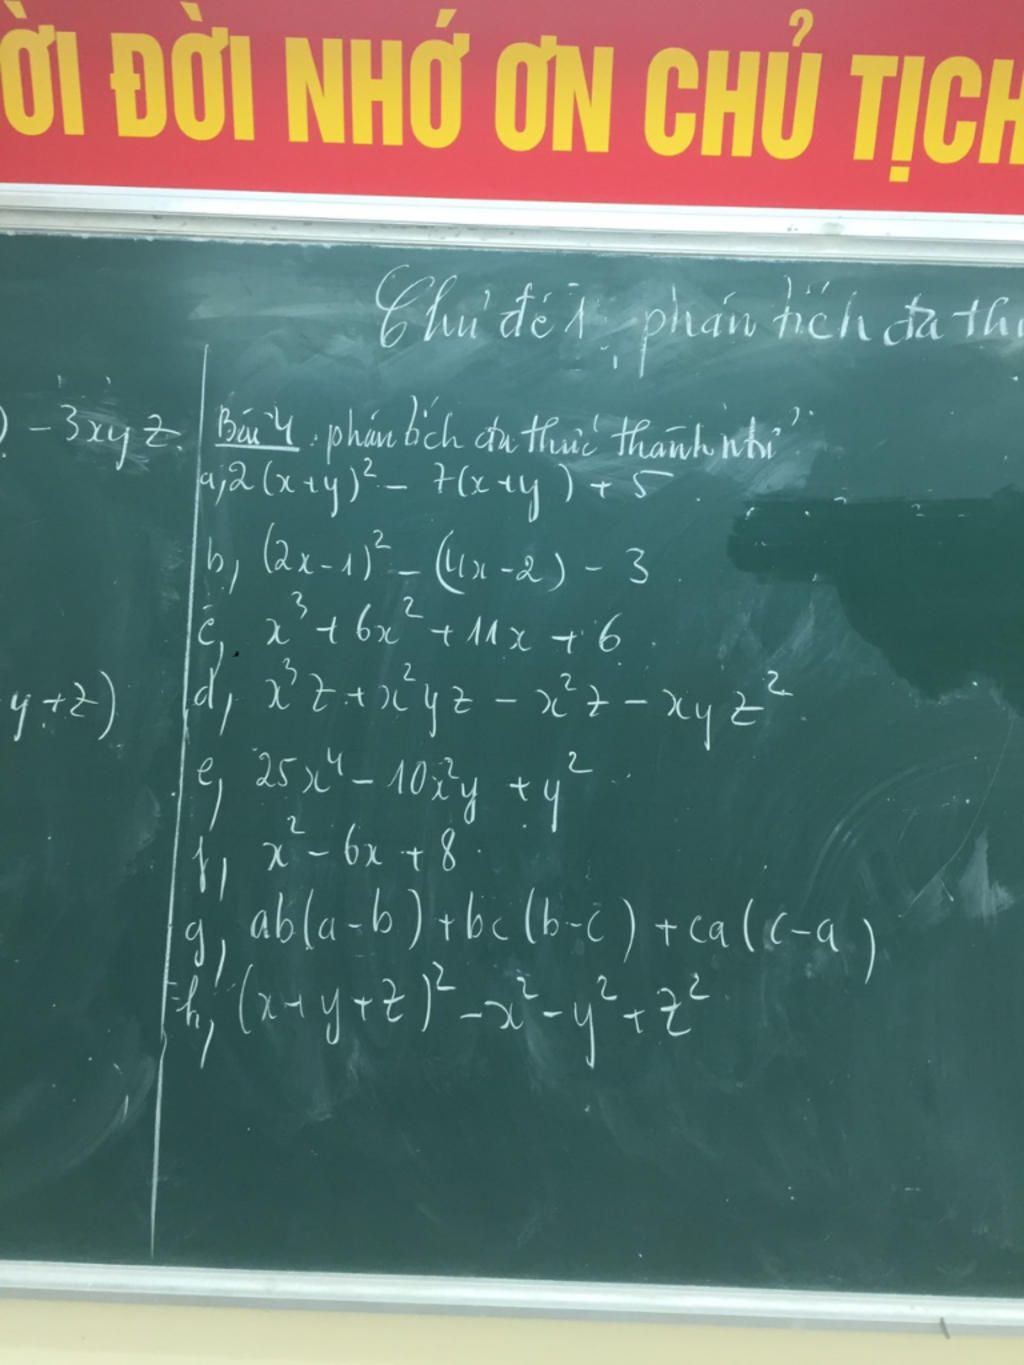 ỜI ĐỜI NHỚ ƠN CHỦ TỊCH
Chủ đề 1: phân tích đa th
) - 3xyz
Bài 4: phân tích đa thức thành ntử
a, 2(x+y)² - 7(x+y) + 5
b, (2x-1)² - (4x-2) - 3
c, x³ + 6x² + 11x + 6
y+z)
d, x³z + x²yz - x²z - xyz²
e, 25x⁴ - 10x²y + y²
f, x² - 6x + 8
g, ab(a-b) + bc(b-c) + ca(c-a)
h, (x+y+z)² - x² - y² + z²